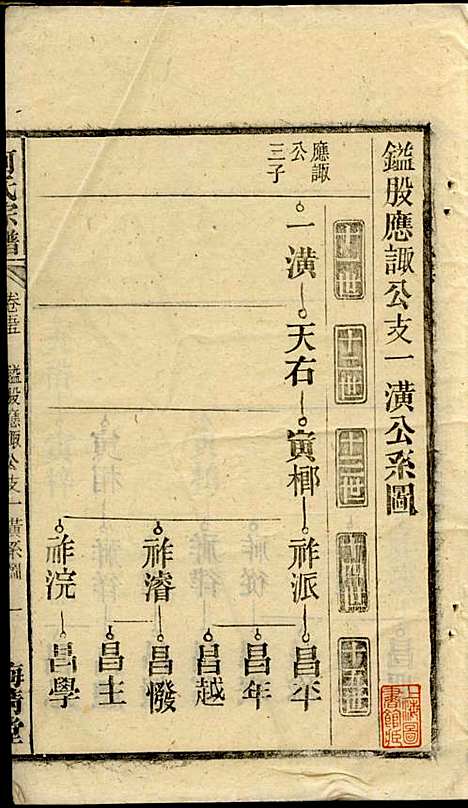 鎰股應諏公支一潢公系圖
十一世
十二世
十三世
十四世
十五世
應諏
公
三子
一潢
天右
寅梛
祚派
昌平
昌年
昌越
祚濬
昌撥
昌主
祚浣
昌學
氏宗譜
卷
鎰股應諏公支一潢系圖
一
堂
上海圖
書館藏